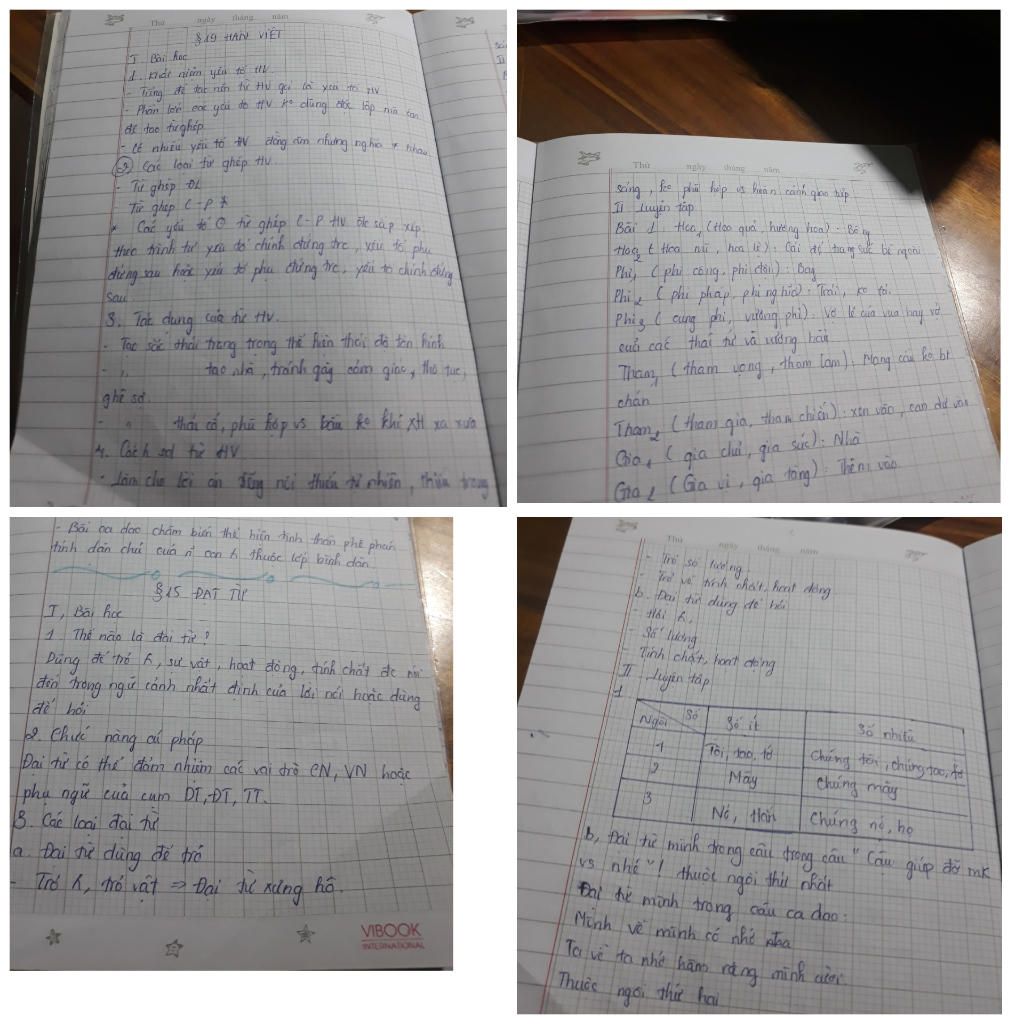 Thứ ngày tháng năm
§ 19 HÁN VIỆT
I. Bài học
1. Khái niệm yếu tố HV.
- Tiếng để tạo nên từ HV gọi là yếu tố HV
- Phần lớn các yếu tố HV ko dùng độc lập mà
để tạo từ ghép
- Có nhiều yếu tố HV đồng âm nhưng nghĩa ≠ nhau
② Các loại từ ghép HV.
- Từ ghép ĐL
Từ ghép C-P
* Các yếu tố từ ghép C-P HV đc sắp xếp
theo trình tự yếu tố chính đứng trc, yếu tố phụ
đứng sau hoặc yếu tố phụ đứng trc, yếu tố chính đứng
sau
3. Tác dụng của từ HV.
- Tạo sắc thái trang trọng thể hiện thái độ tôn kính
- " tao nhã, tránh gây cảm giác, thô tục,
ghê sợ.
- " thái cổ, phù hợp vs bầu ko khí XH xa xưa
4. Cách sd từ HV
- Làm cho lời ăn tiếng nói thiếu tự nhiên, thiếu trong
Thứ ngày tháng năm
sáng, ko phù hợp vs hoàn cảnh giao tiếp
II Luyện tập
Bài 1. Hoa₁ (Hoa quả, hương hoa): Bông
Hoa₂ ( Hoa mĩ, hoa lệ): Cái để trang sức bề ngoài
Phi₁ ( phi công, phi đội): Bay
Phi₂ ( phi pháp, phi nghĩa): Trái, ko
Phi₃ ( cung phi, vương phi): Vợ lẽ của vua hay vợ
của các thái tử và vương hầu
Tham₁ ( tham vọng, tham lam): Mong cầu ko bt
chán
Tham₂ ( tham gia, tham chiến): xen vào, can dự vào
Gia₁ ( gia chủ, gia súc): Nhà
Gia₂ ( Gia vị, gia tăng): Thêm vào
- Bài ca dao châm biếm thể hiện tinh thần phê phán
tính dân chủ của n̄ con thuộc lớp bình dân.
§ 15 ĐẠI TỪ
I, Bài học
1. Thế nào là đại từ?
Dùng để trỏ, sự vật, hoạt động, tính chất đc nói
đến trong ngữ cảnh nhất định của lời nói hoặc dùng
để hỏi
2. Chức năng cú pháp
Đại từ có thể đảm nhiệm các vai trò CN, VN hoặc
phụ ngữ của cụm DT, ĐT, TT.
3. Các loại đại từ
a. Đại từ dùng để trỏ
- Trỏ, trỏ vật => Đại từ xưng hô.
VIBOOK
INTERNATIONAL
Thứ ngày tháng năm
- Trỏ số lượng.
- Trỏ về tính chất, hoạt động
b. Đại từ dùng để hỏi
- Hỏi
- Số lượng
- Tính chất, hoạt động
II Luyện tập
1
Ngôi Số Số ít Số nhiều
1 Tôi, tao, tớ Chúng tôi, chúng tao, tớ
2 Mày Chúng mày
3 Nó, Hắn Chúng nó, họ
b, Đại từ mình trong câu trong câu "Cậu giúp đỡ mk
vs nhé"! thuộc ngôi thứ nhất
Đại từ mình trong câu ca dao:
Mình về mình có nhớ ta
Ta về ta nhớ hàm răng mình cười.
Thuộc ngôi thứ hai